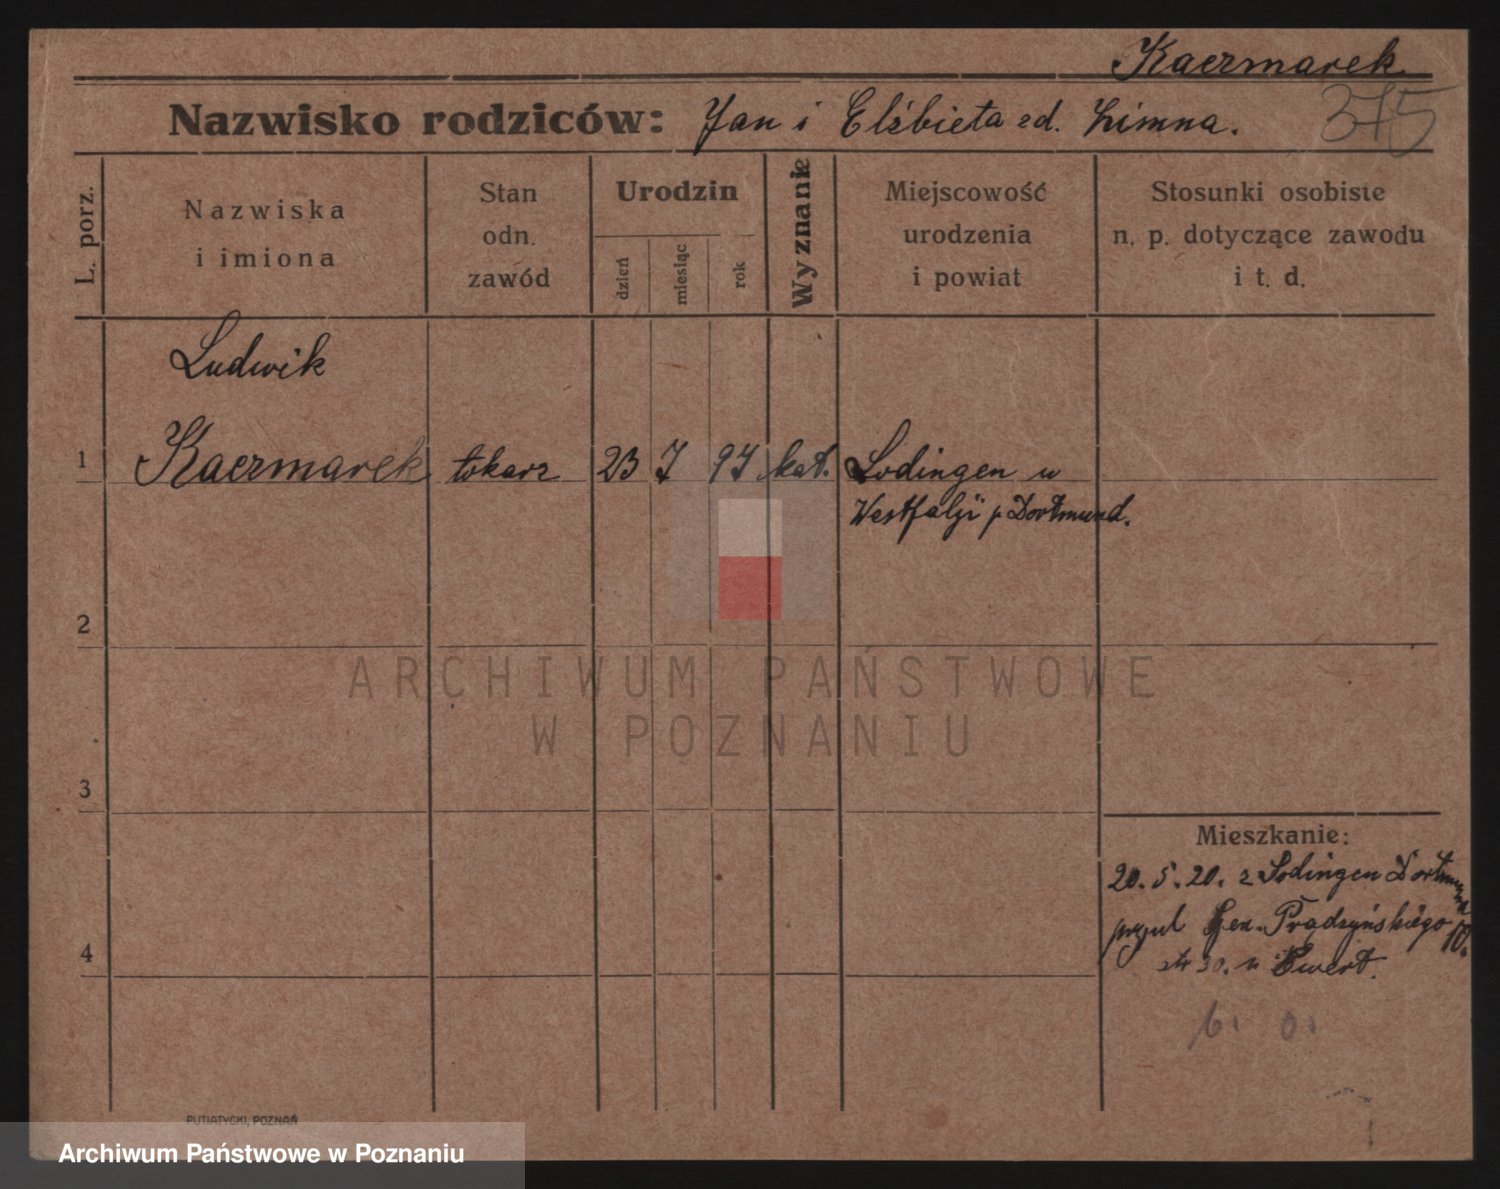 Kaczmarek
Nazwisko rodziców: Jan i Elżbieta zd. Zimna.
375
L. porz.
Nazwiska
i imiona
Stan
odn.
zawód
Urodzin
dzień
miesiąc
rok
Wyznanie
Miejscowość
urodzenia
i powiat
Stosunki osobiste
n. p. dotyczące zawodu
i t. d.
Ludwik
1 Kaczmarek tokarz 23 7 97 kat. Sodingen w
Westfalji p Dortmund.
2
3
4
Mieszkanie:
20. 5. 20. z Sodingen Dortmund
Gen. Prądzyńskiego 10.
30. u Ewert.
b. o.
PUTIATYCKI, POZNAŃ
ARCHIWUM PAŃSTWOWE
W POZNANIU
Archiwum Państwowe w Poznaniu